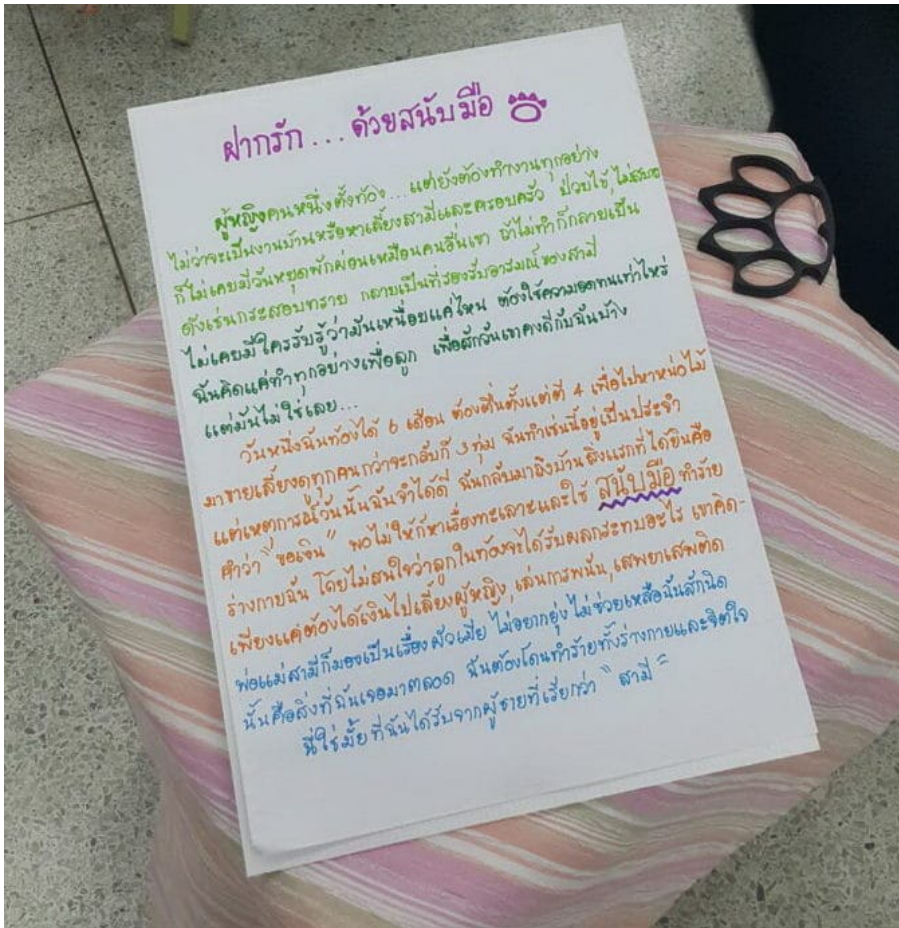 ฝากรัก...ด้วยสนับมือ
ผู้หญิงคนหนึ่งตั้งท้อง...แต่ยังต้องทำงานทุกอย่าง
ไม่ว่าจะเป็นงานบ้านหรือหาเลี้ยงสามีและครอบครัว ป่วยไข้,ไม่สบาย
ก็ไม่เคยมีวันหยุดพักผ่อนเหมือนคนอื่นเขา ถ้าไม่ทำก็กลายเป็น
ดังเช่นกระสอบทราย กลายเป็นที่รองรับอารมณ์ของสามี
ไม่เคยมีใครรับรู้ว่ามันเหนื่อยแค่ไหน ต้องใช้ความอดทนเท่าไหร่
ฉันคิดแค่ทำทุกอย่างเพื่อลูก เพื่อสักวันเขาคงดีกับฉันบ้าง
แต่มันไม่ใช่เลย...
วันหนึ่งฉันท้องได้ 6 เดือน ต้องตื่นตั้งแต่ตี 4 เพื่อไปหาหน่อไม้
มาขายเลี้ยงดูทุกคนกว่าจะกลับก็ 3 ทุ่ม ฉันทำเช่นนี้อยู่เป็นประจำ
แต่เหตุการณ์วันนั้นฉันจำได้ดี ฉันกลับมาถึงบ้านสิ่งแรกที่ได้ยินคือ
คำว่า "ขอเงิน" พอไม่ให้ก็หาเรื่องทะเลาะและใช้ สนับมือ ทำร้าย
ร่างกายฉัน โดยไม่สนใจว่าลูกในท้องจะได้รับผลกระทบอะไร เขาคิด-
เพียงแค่ต้องได้เงินไปเลี้ยงผู้หญิง,เล่นการพนัน,เสพยาเสพติด
พ่อแม่สามีก็มองเป็นเรื่องผัวเมีย ไม่อยากยุ่งไม่ช่วยเหลือฉันสักนิด
นั้นคือสิ่งที่ฉันเจอมาตลอด ฉันต้องโดนทำร้ายทั้งร่างกายและจิตใจ
นี่ใช่มั้ยที่ฉันได้รับจากผู้ชายที่เรียกว่า "สามี"